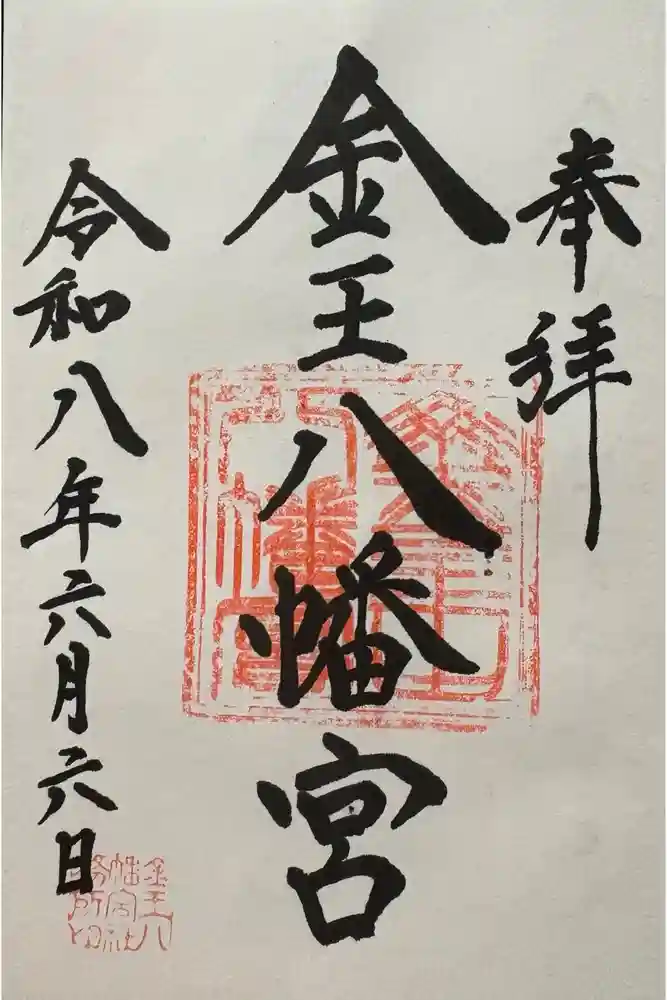 奉拝
金王八幡宮
令和八年六月六日
金王八
幡宮社
務所印